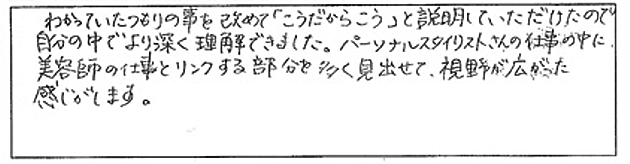 わかっていたつもりの事を改めて「こうだからこう」と説明していただけたので
自分の中でより深く理解できました。パーソナルスタイリストさんの仕事の中に、
美容師の仕事とリンクする部分を多く見出せて、視野が広がった
感じがします。